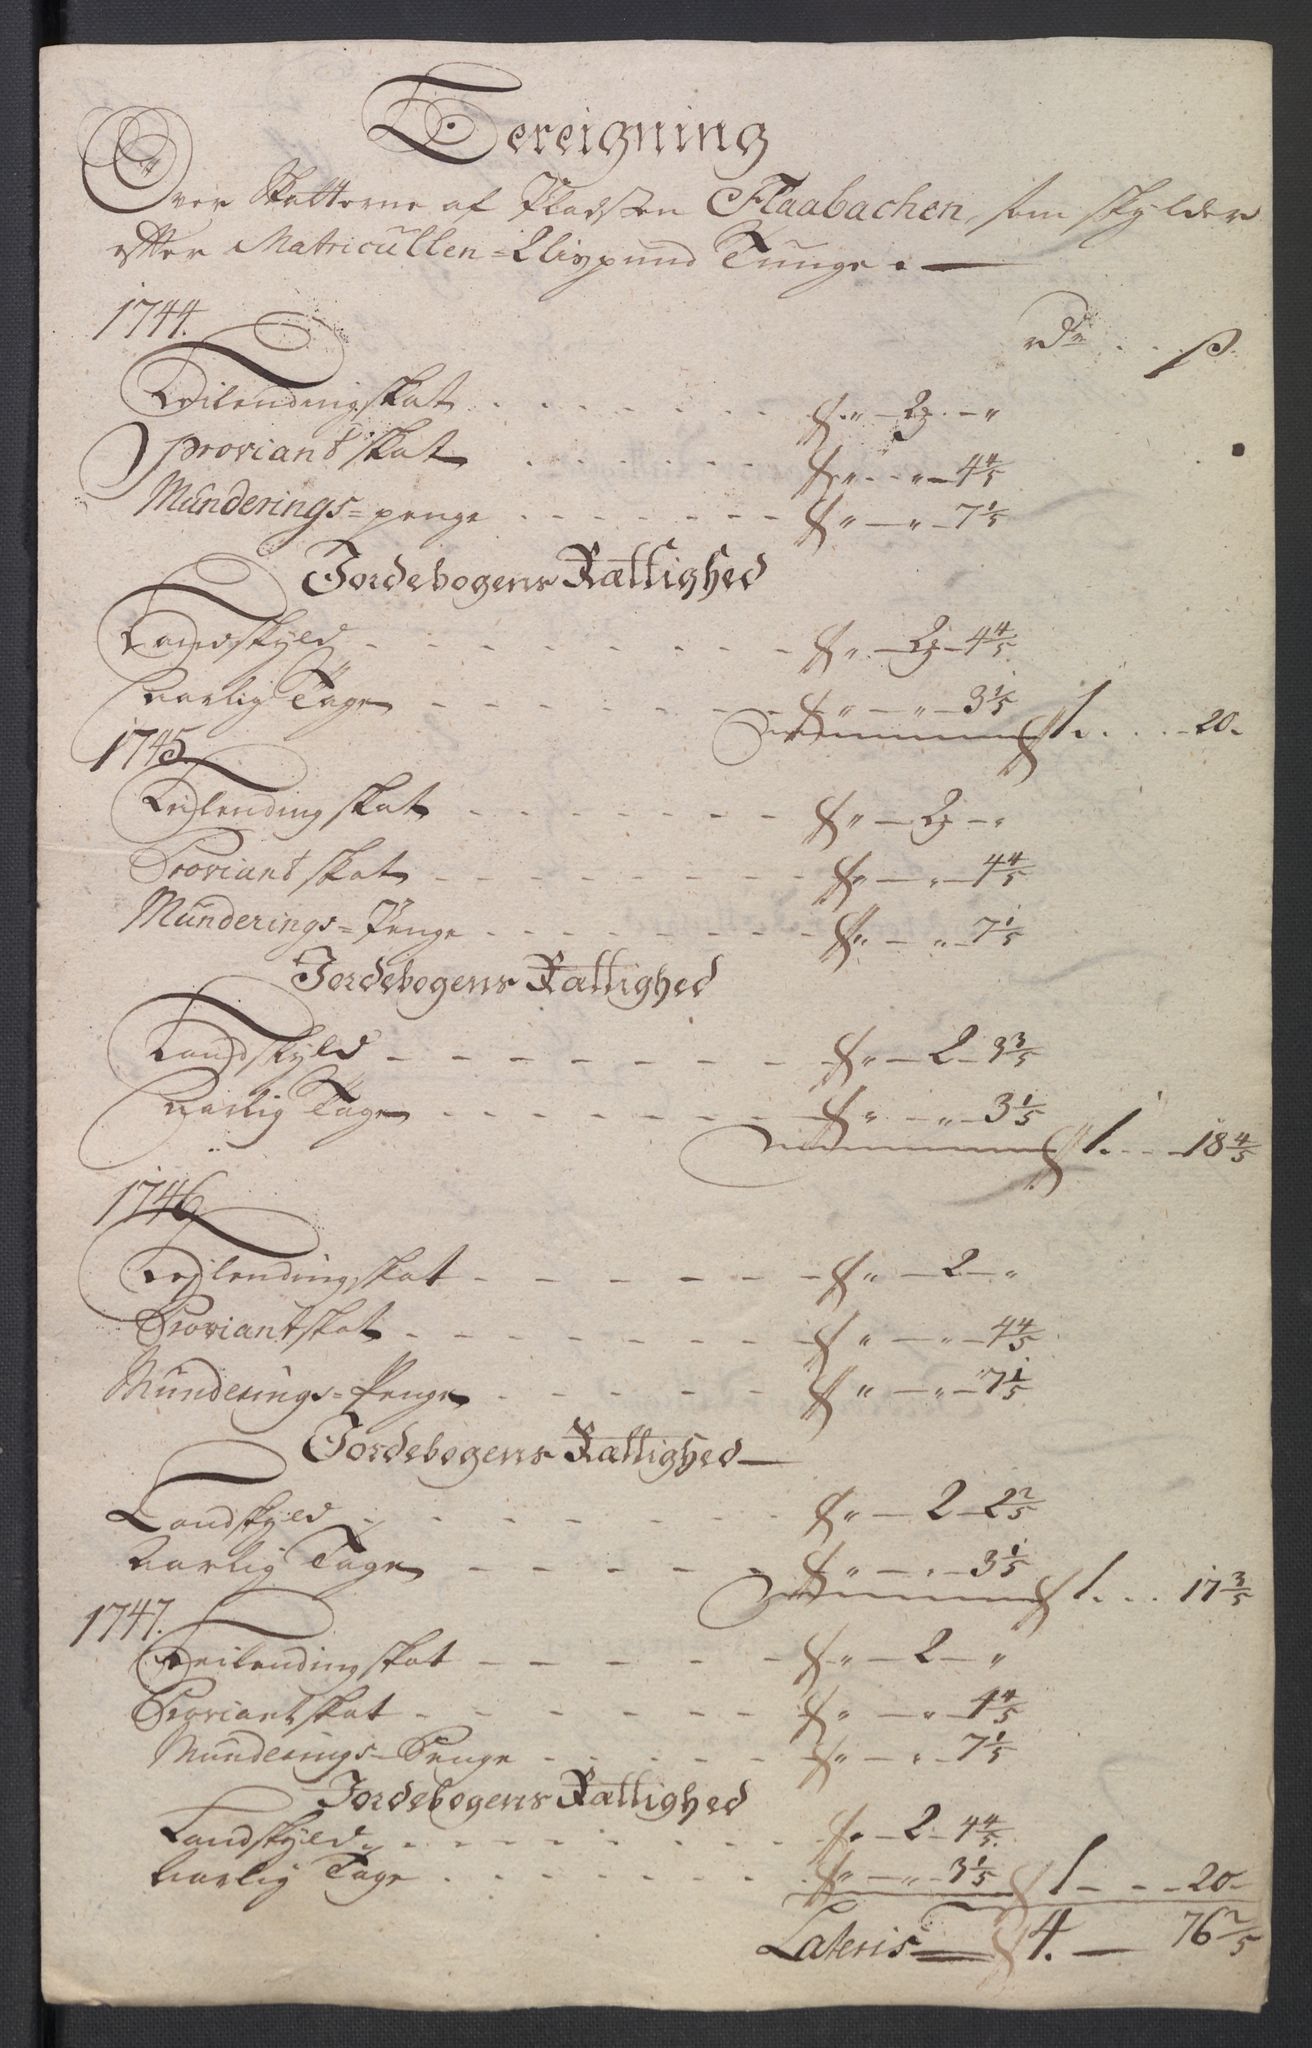 Bereigning
Over Skatterne af Pladsen Flaabachen, som skylder
efter Matricullen = Lispund Tunge. —
1744. Rdr . . . ß.
Leilendingskat . . . . . . . „ — 2 . — „
Proviantskat . . . . . . „ . . „ — 4 4/5
Münderings = penge . . . . . . . „ — „ — 7 1/5
Jordebogens Rættighed
Landskyld . . . . . . . . „ — 2 — 4 4/5
Aarlig Tage . . . . . . . „ — „ — 3 1/5
1. . . . 20.
1745.
Leilendingskat . . . . . . . „ — 2 — „
Proviantskat . . . . . . . . „ — „ — 4 4/5
Münderings = Penge . . . . . . . „ — „ — 7 1/5
Jordebogens Rættighed
Landskyld . . . . . . . . „ — 2 — 3 3/5
Aarlig Tage . . . . . . . „ — „ — 3 1/5
1. . . . 18 4/5
1746
Lejlendingskat . . . . . . „ — 2 — „
Proviantskat . . . . . . . „ — „ — 4 4/5
Münderings = Penge . . . . . . „ — „ — 7 1/5
Jordebogens Rættighed —
Landskyld . . . . . . . „ — 2 — 2 2/5
Aarlig Tage . . . . . . „ — „ — 3 1/5
1. . . . 17 3/5
1747.
Leilendingskat . . . . . . „ — 2 — „
Proviantskat . . . . . . . „ — „ — 4 4/5
Münderings = Penge . . . . . „ — „ — 7 1/5
Jordebogens Rættighed
Landskyld . . . . . . . „ — 2 — 4 4/5
Aarlig Tage . . . . . . . „ — „ — 3 1/5 1 — . . — 20 —
Lateris — 4. — 76 2/5